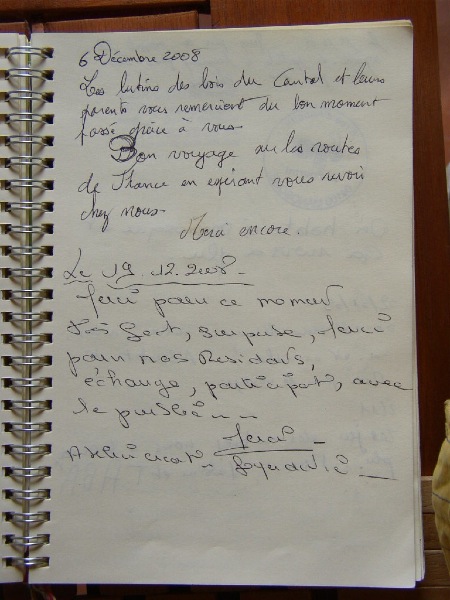 6 Décembre 2008
Les lutins des bois du Cantal et leurs
parents vous remercient du bon moment
passé grâce à vous.
Bon voyage sur les routes
de France en espérant vous revoir
chez nous.
Merci encore.
Le 19.12.2008
Merci pour ce moment
Fort, surprise, Merci
pour nos Residents,
échange, participat, avec
le public
Merci